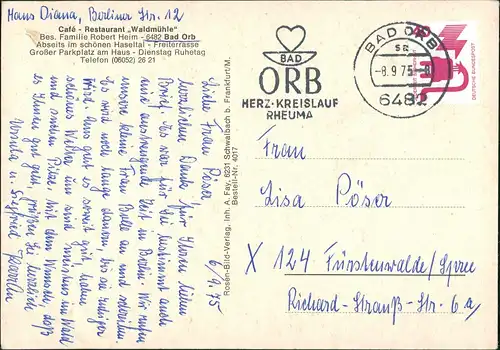 Haus Diana, Berliner Str. 12
Café - Restaurant „Waldmühle"
Bes. Familie Robert Heim - 6482 Bad Orb
Abseits im schönen Haseltal - Freiterrasse
Großer Parkplatz am Haus - Dienstag Ruhetag
Telefon (06052) 26 21
6/9.75
Liebe Frau Pöser,
herzlichen Dank für Ihren lieben
Brief. Es war für Sie bestimmt auch
eine aufregende Zeit in Berlin. Wir rufen
unsere kleine Frau Bolle an und schreiben.
Es wird noch lange dauern, bis sie ruhiger
wird. Uns gut es soweit gut, haben
schönes Wetter und sind meistens im Wald
und machen Pläne. Mit dem Wunsche, daß
es Ihnen gut geht, grüßen Sie herzlich
Ursula u. Siegfried
Rosen-Bild-Verlag, Inh. A. Fay, 6231 Schwalbach b. Frankfurt/M.
Bestell-Nr. 4017
BAD
ORB
HERZ-KREISLAUF
RHEUMA
BAD ORB
-8.9.75-8
6482
DEUTSCHE BUNDESPOST
Frau
Lisa Pöser
X 124 Fürstenwalde/Spree
Richard-Strauß-Str. 6a